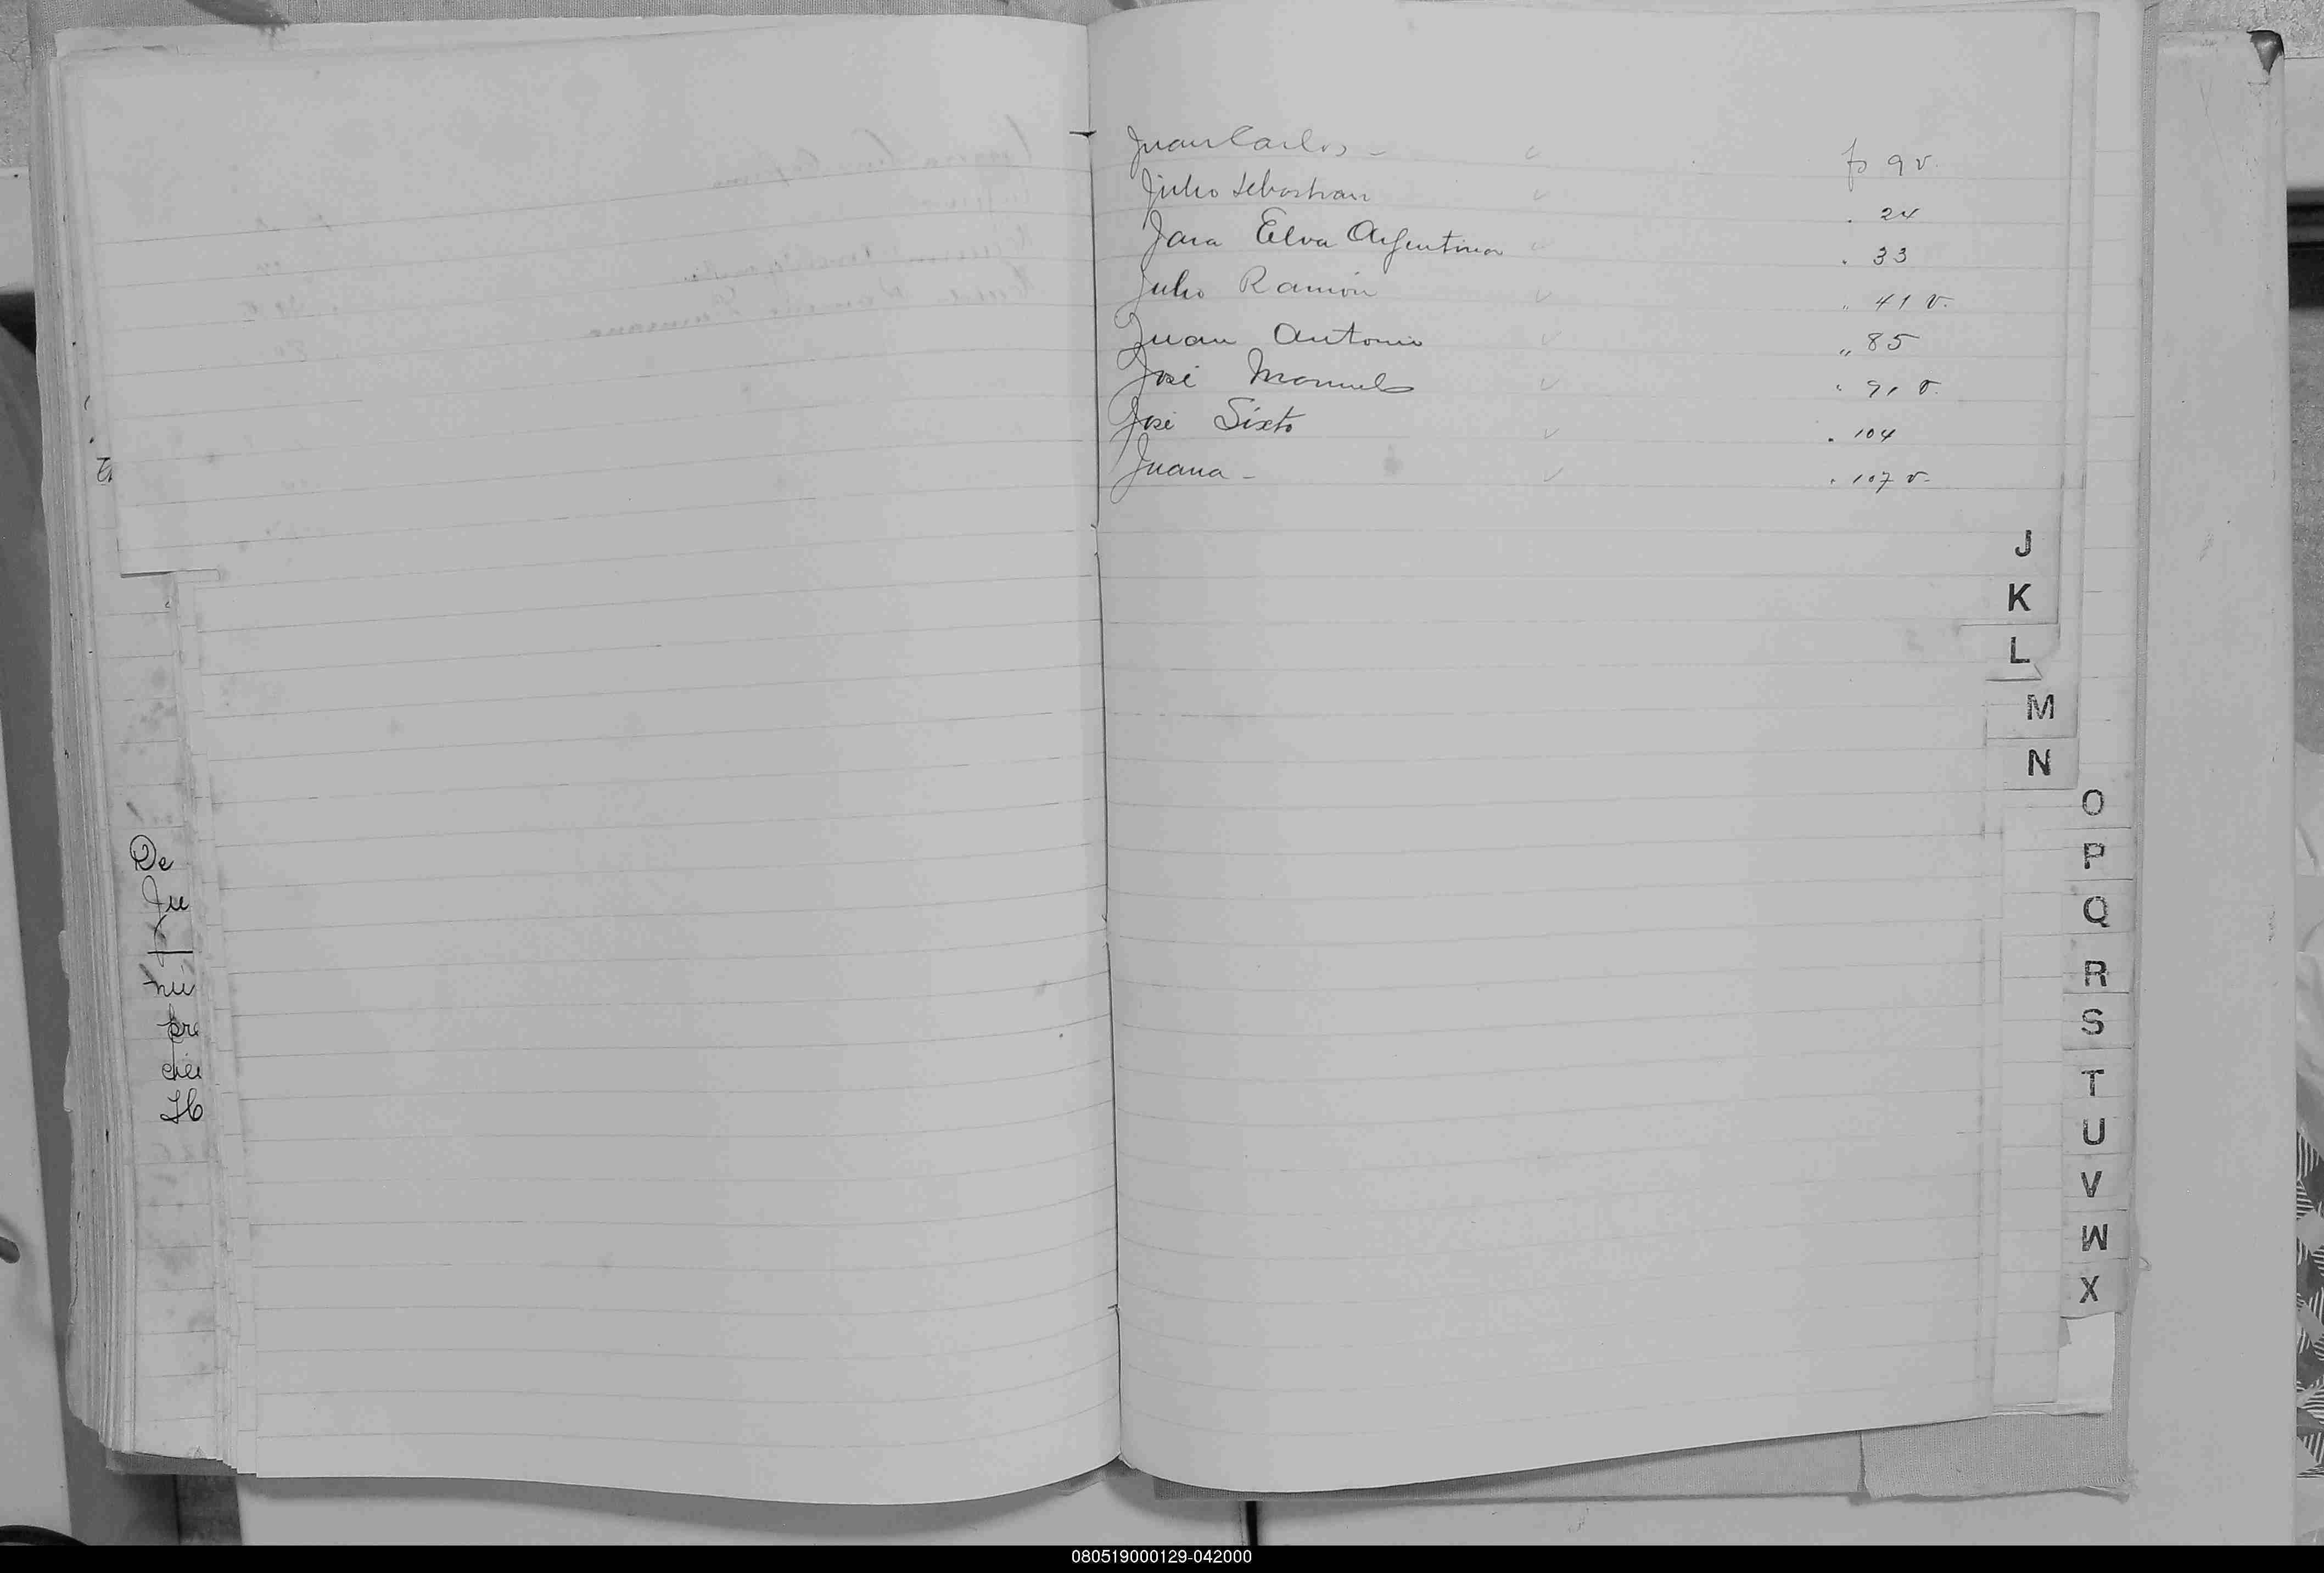 Juan Carlos - fs 9 v.
Julio Sebastian . 24
Jara Elva Argentina . 33
Julio Ramón " 41 v.
Juan Antonio " 85
José Manuel " 91 v.
José Sixto " 104
Juana - " 107 v.
J
K
L
M
N
O
P
Q
R
S
T
U
V
W
X
De
Ju
080519000129-042000